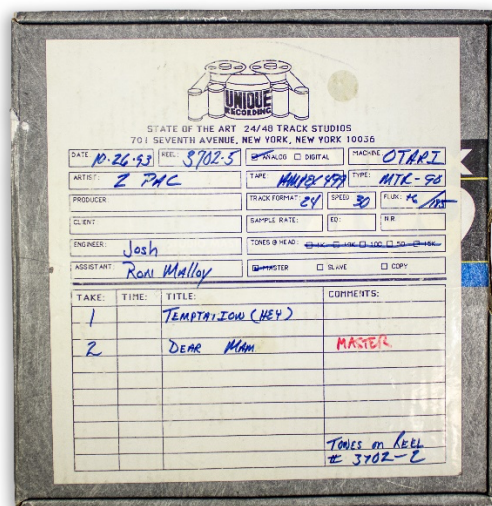 UNIQUE
RECORDING
STATE OF THE ART 24/48 TRACK STUDIOS
701 SEVENTH AVENUE, NEW YORK, NEW YORK 10036
DATE 10-26-93 REEL: 3702-5 ANALOG DIGITAL MACHINE OTARI
ARTIST: 2 PAC TAPE: AMPEX 499 TYPE: MTR-90
PRODUCER: TRACK FORMAT: 24 SPEED 30 FLUX: +6/185
CLIENT: SAMPLE RATE: EQ: N.R.
ENGINEER: Josh TONES @ HEAD: 1K 10K 100 50 15K
ASSISTANT: Roni Malloy MASTER SLAVE COPY
TAKE: TIME: TITLE: COMMENTS:
1 TEMPTATION (HEY)
2 DEAR MAM MASTER
TONES on REEL
# 3702-2